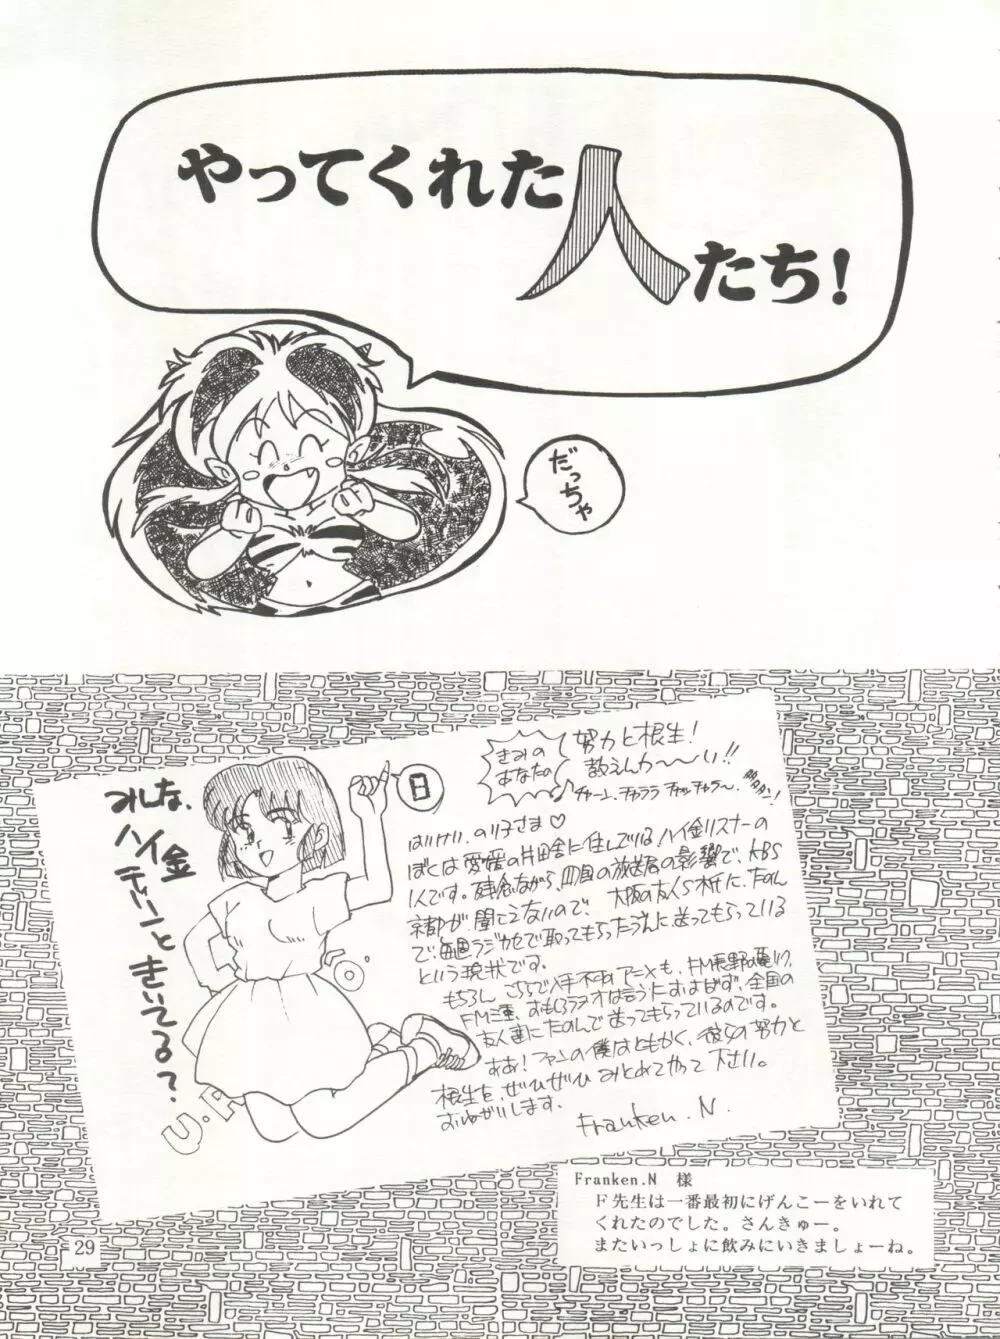 やってくれた人たち!
だっちゃ
みんな、
ハイ金
きいてる?
日
きみの
あなたの
努力と根性!
教えんかーーい!!
はいけい、のり子さま♡
ぼくは愛媛の片田舎に住んでいる、ハイ金リスナーの
1人です。残念ながら、四国の放送局の影響で、KBS
京都が聞こえないので、大阪の友くら木氏に、たのん
で、毎週ラジカセで取ってもらったうえに送ってもらっている
という現状です。
もちろん こちらで入手不可アニメも、FM長野の
FM三重、おもしろラヂオは言うにおよばず、全国の
友人達にたのんで送ってもらっているのです。
ああ!ファンの僕はともかく、彼女の努力と
根性を、ぜひぜひ みとめてやって 下さい。
おねがいします。
Franken.N.
U.P
Franken.N 様
F先生は一番最初にげんこーをいれて
くれたのでした。さんきゅー。
またいっしょに飲みにいきましょーね。
29